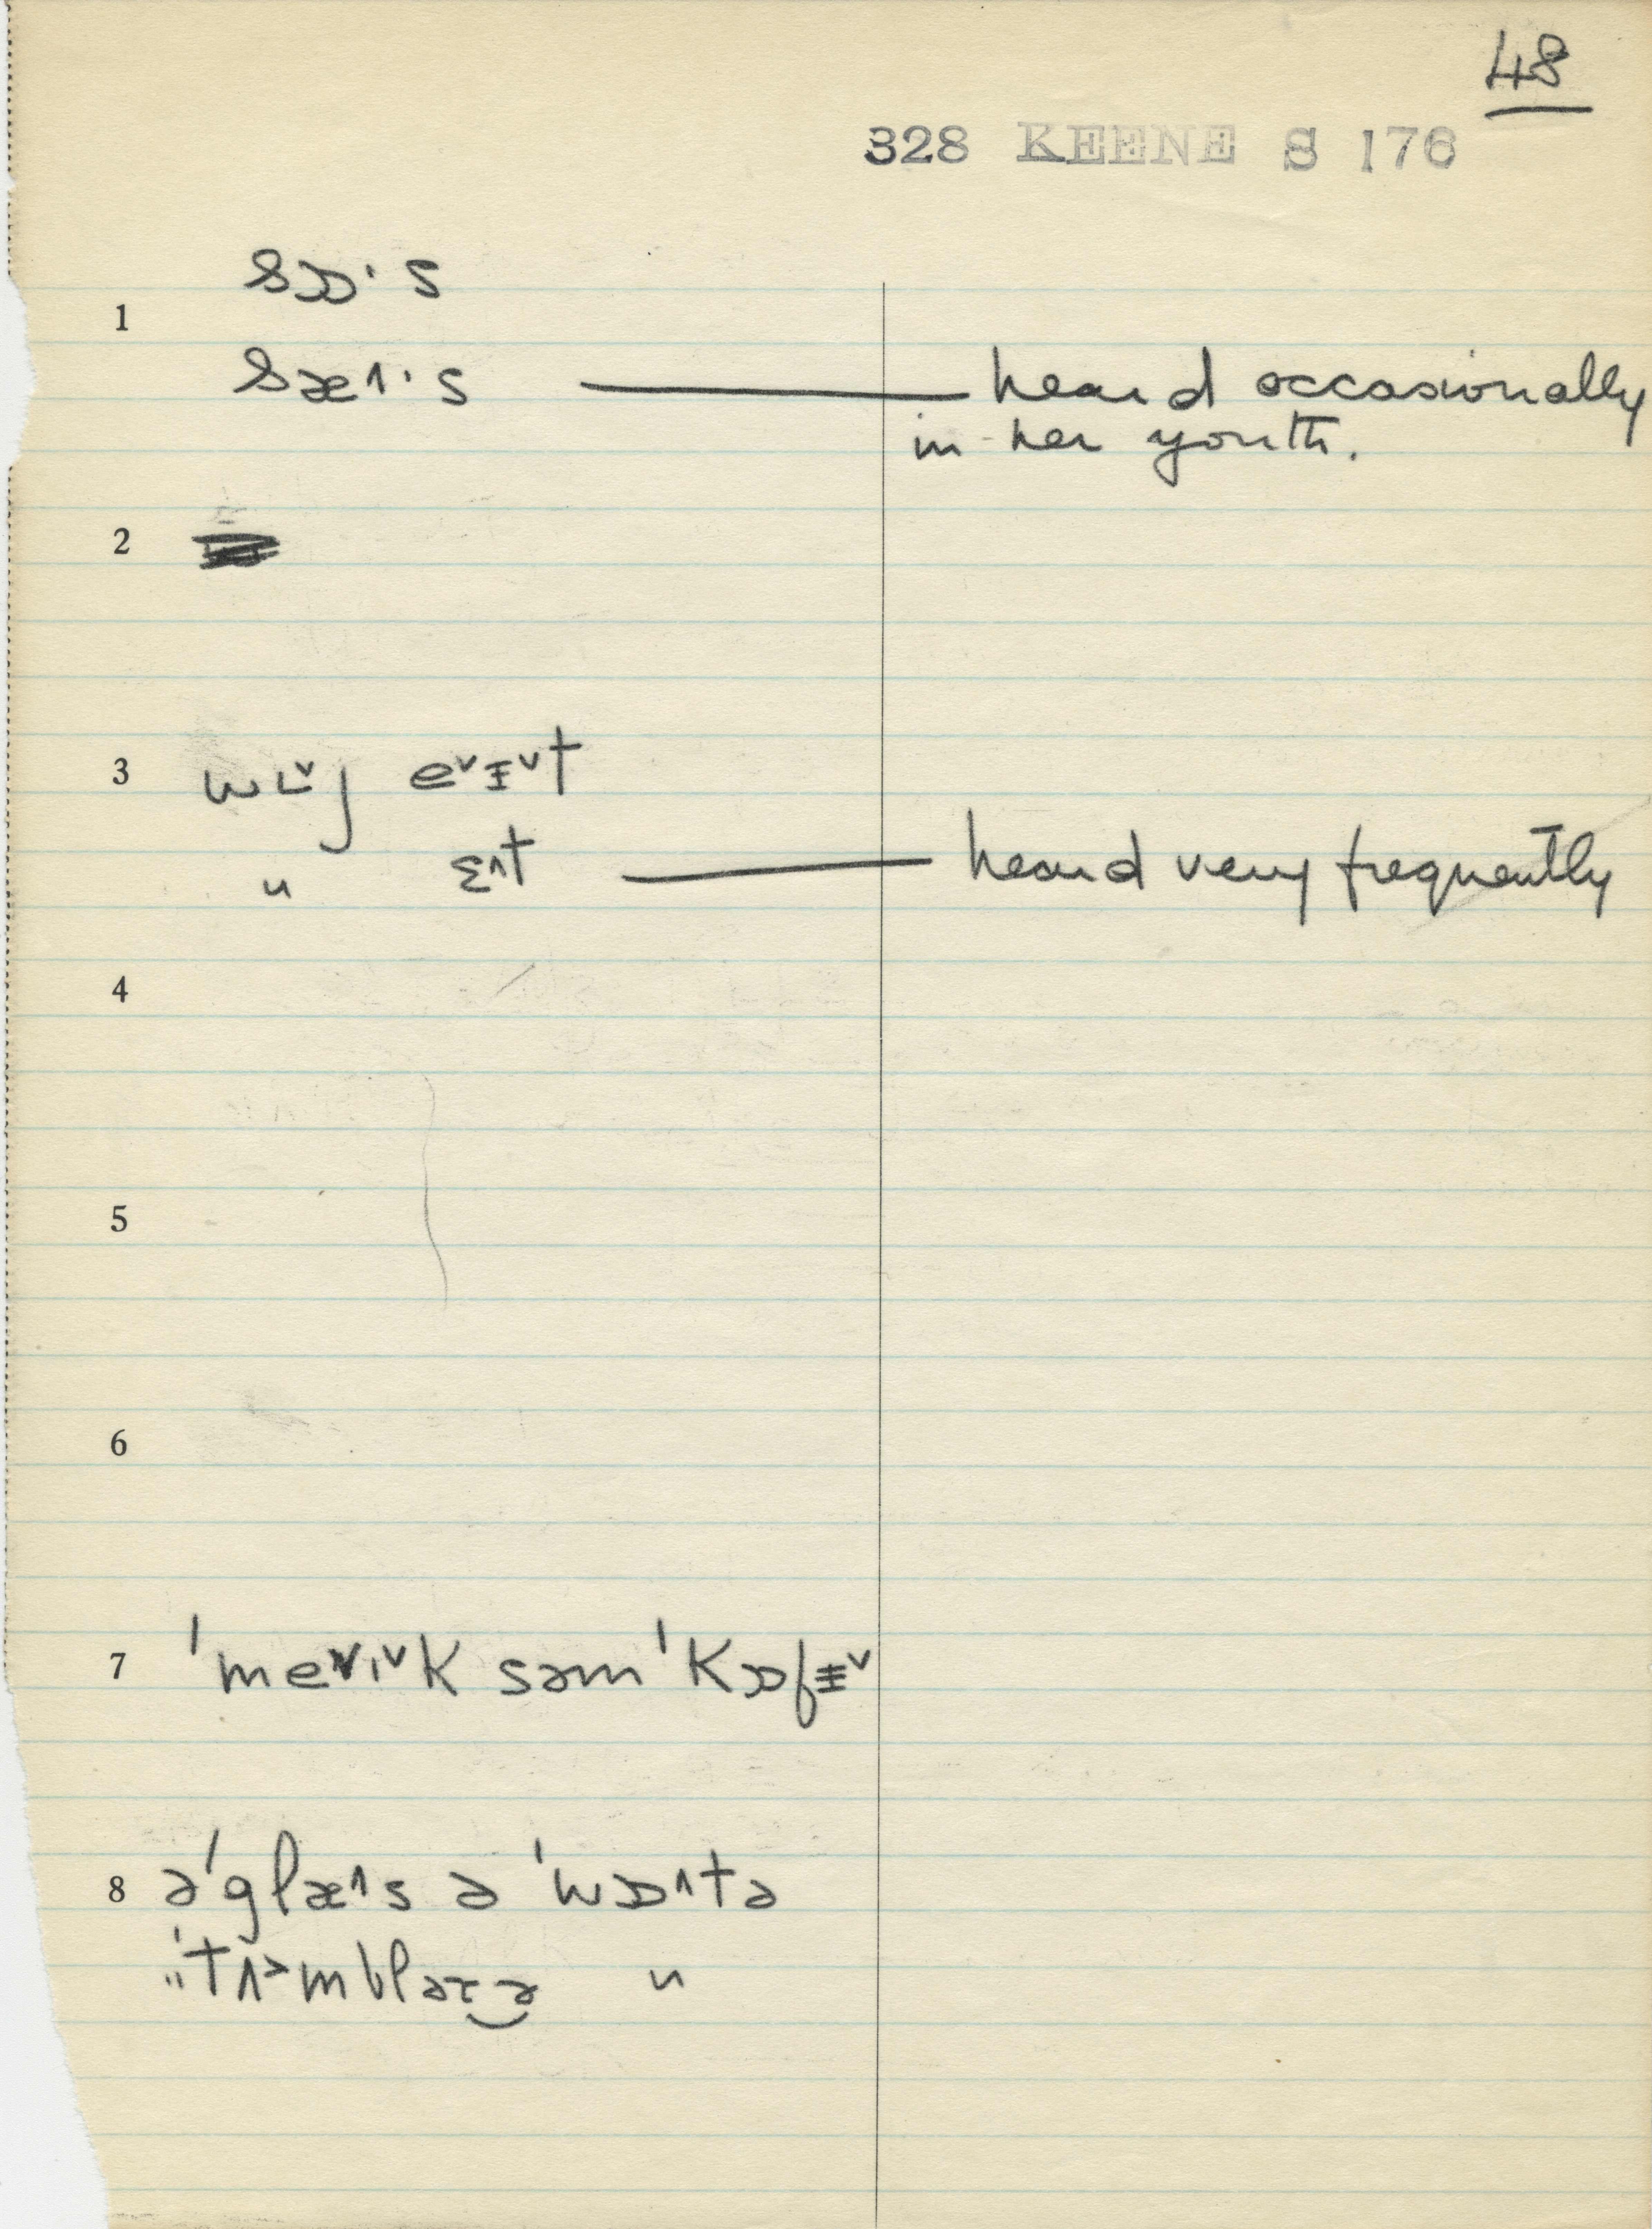 48
328 KEENE S 176
1 sɒ·s
sæ˄·s — heard occasionally
in her youth.
2
3 wɪ˅j e˅ɪ˅t
" ɛ˄t — heard very frequently
4
5
6
7 ˈme˅ɪ˅k səmˈkɒfɪ˅
8 əˈglæ˄s ə ˈwɒ˄tə
" ˈtʌ˃mbləɾ‿ə "